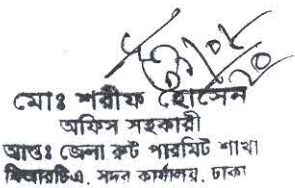 মোঃ শরীফ হোসেন
অফিস সহকারী
আন্তঃ জেলা রুট পারমিট শাখা
বিআরটিএ, সদর কার্যালয়, ঢাকা